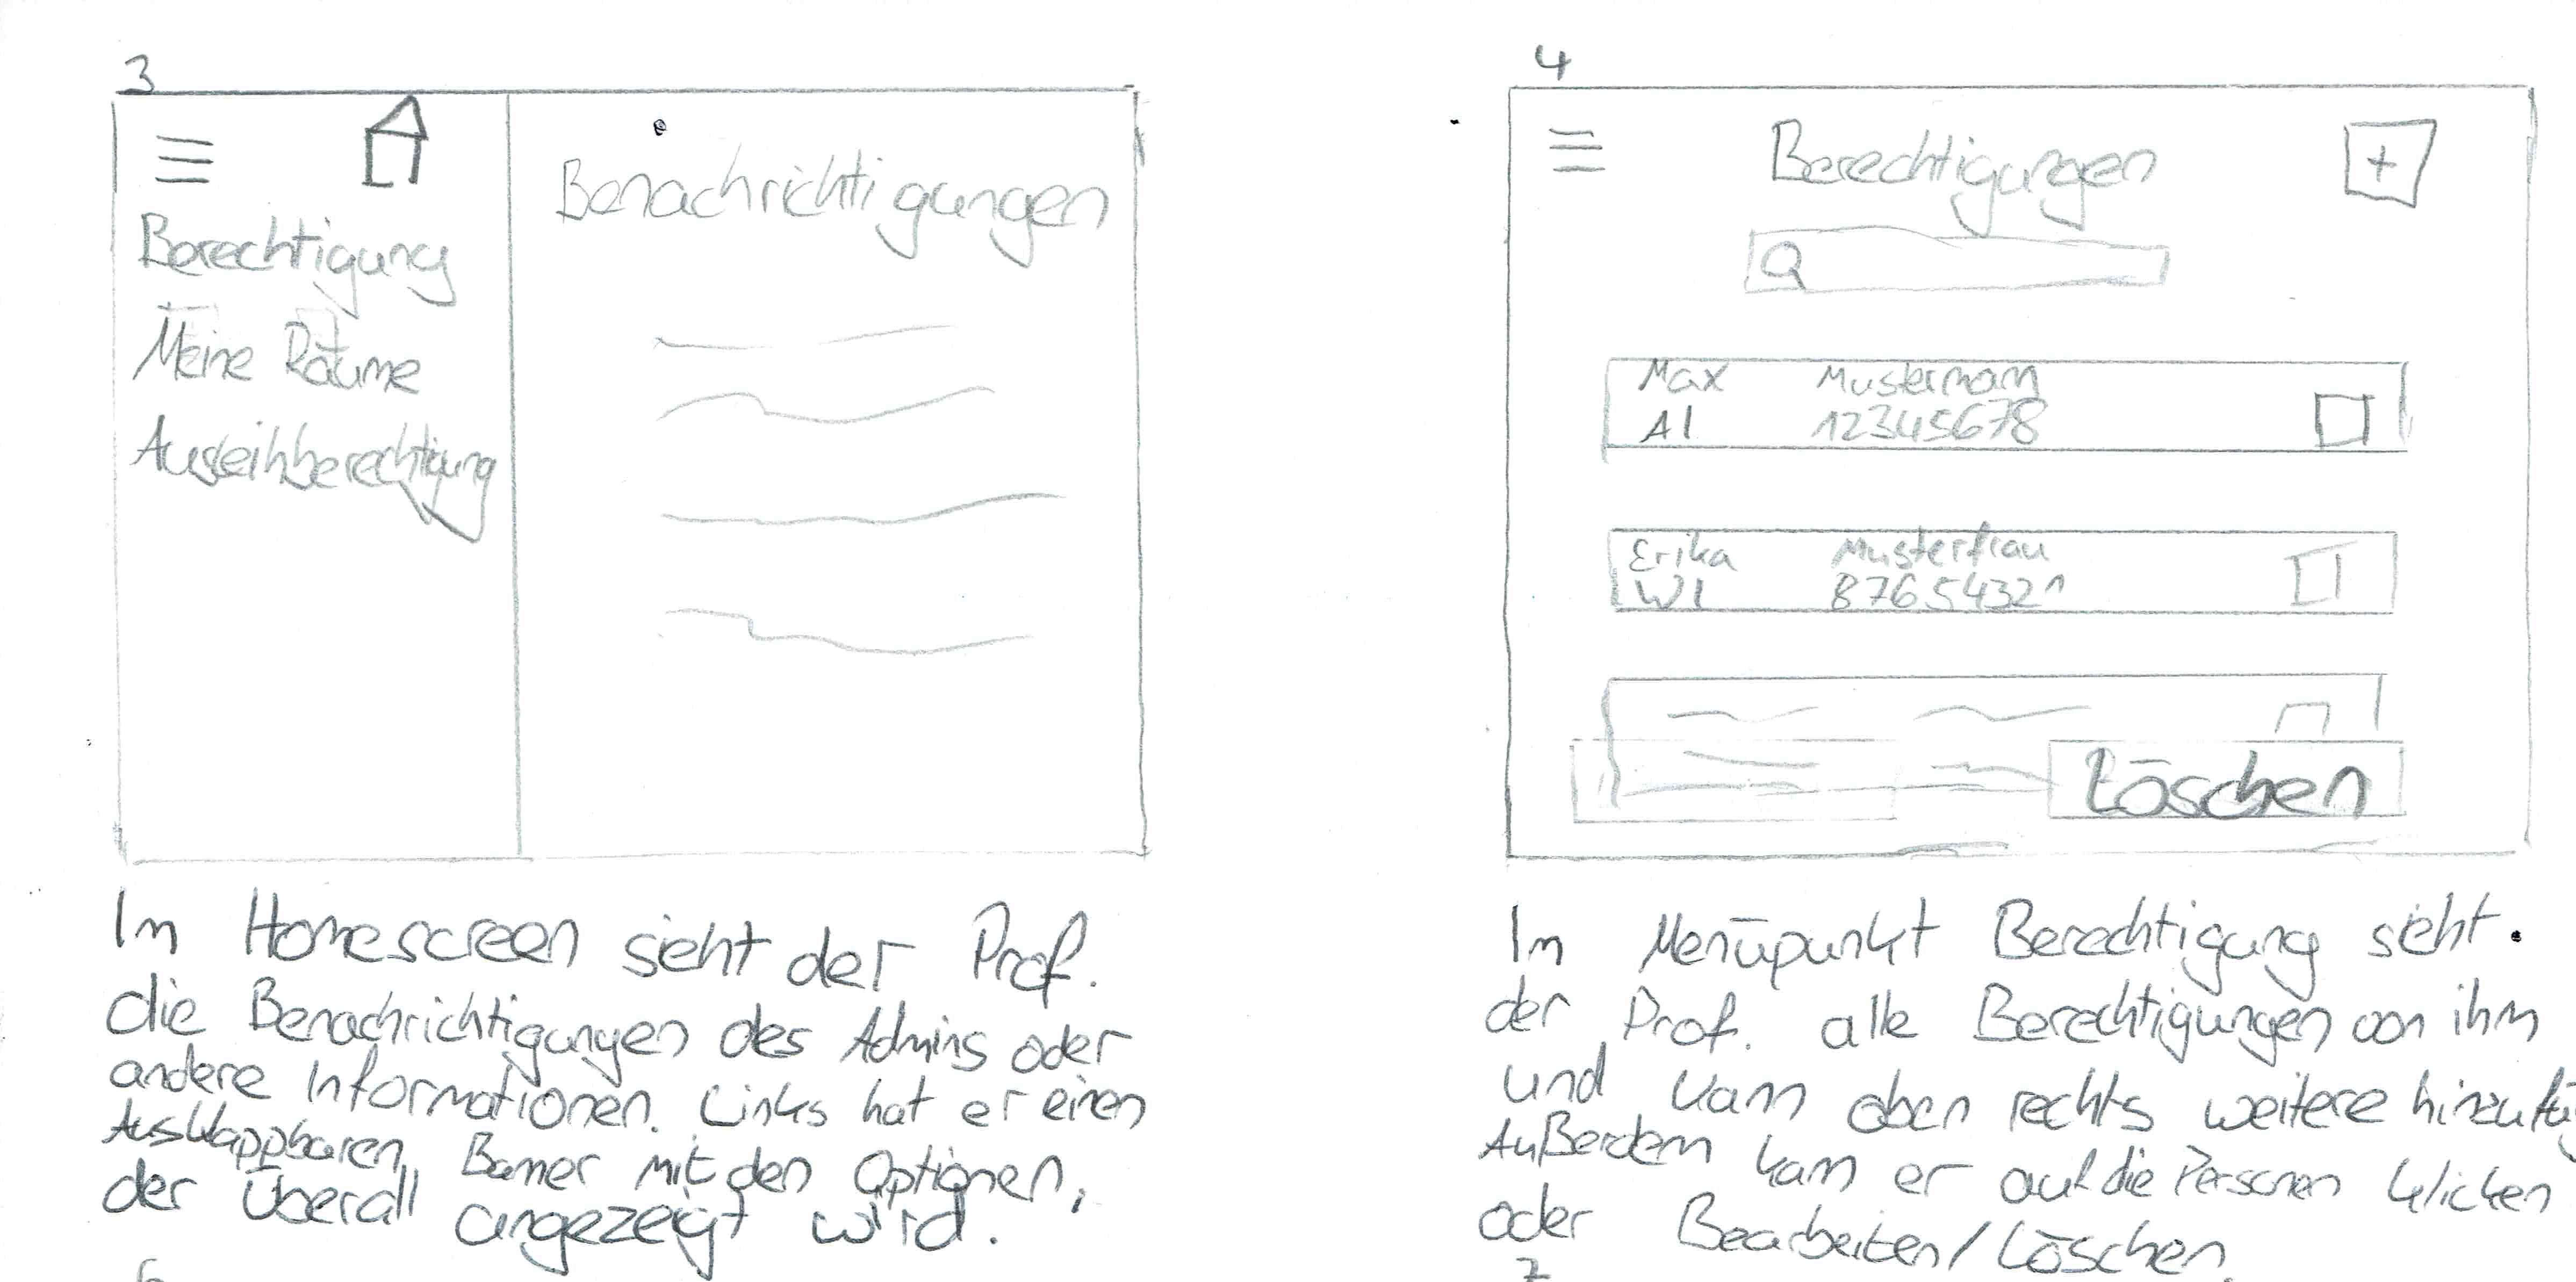 3
Benachrichtigungen
Berechtigung
Meine Räume
Ausleihberechtigung
In Homescreen sieht der Prof.
die Benachrichtigungen des Admins oder
andere Informationen. Links hat er einen
Ausklappbaren Banner mit den Optionen,
der Überall angezeigt wird.
6
4
Berechtigungen
+
Max Mustermann
AI 12345678
Erika Musterfrau
WI 87654321
Löschen
Im Menüpunkt Berechtigung sieht
der Prof. alle Berechtigungen von ihm
und kann oben rechts weitere hinzufü
Außerdem kann er auf die Personen klicken
oder Bearbeiten/Löschen.
7